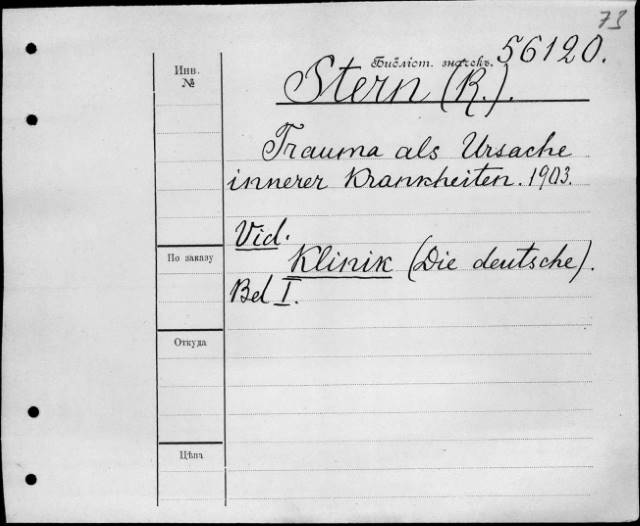 73
Инв.
№
Библіот. значекъ. 56120.
Stern (R.).
Trauma als Ursache
innerer Krankheiten. 1903.
Vid.
Klinik (Die deutsche).
Bd I.
По заказу
Откуда
Цѣна